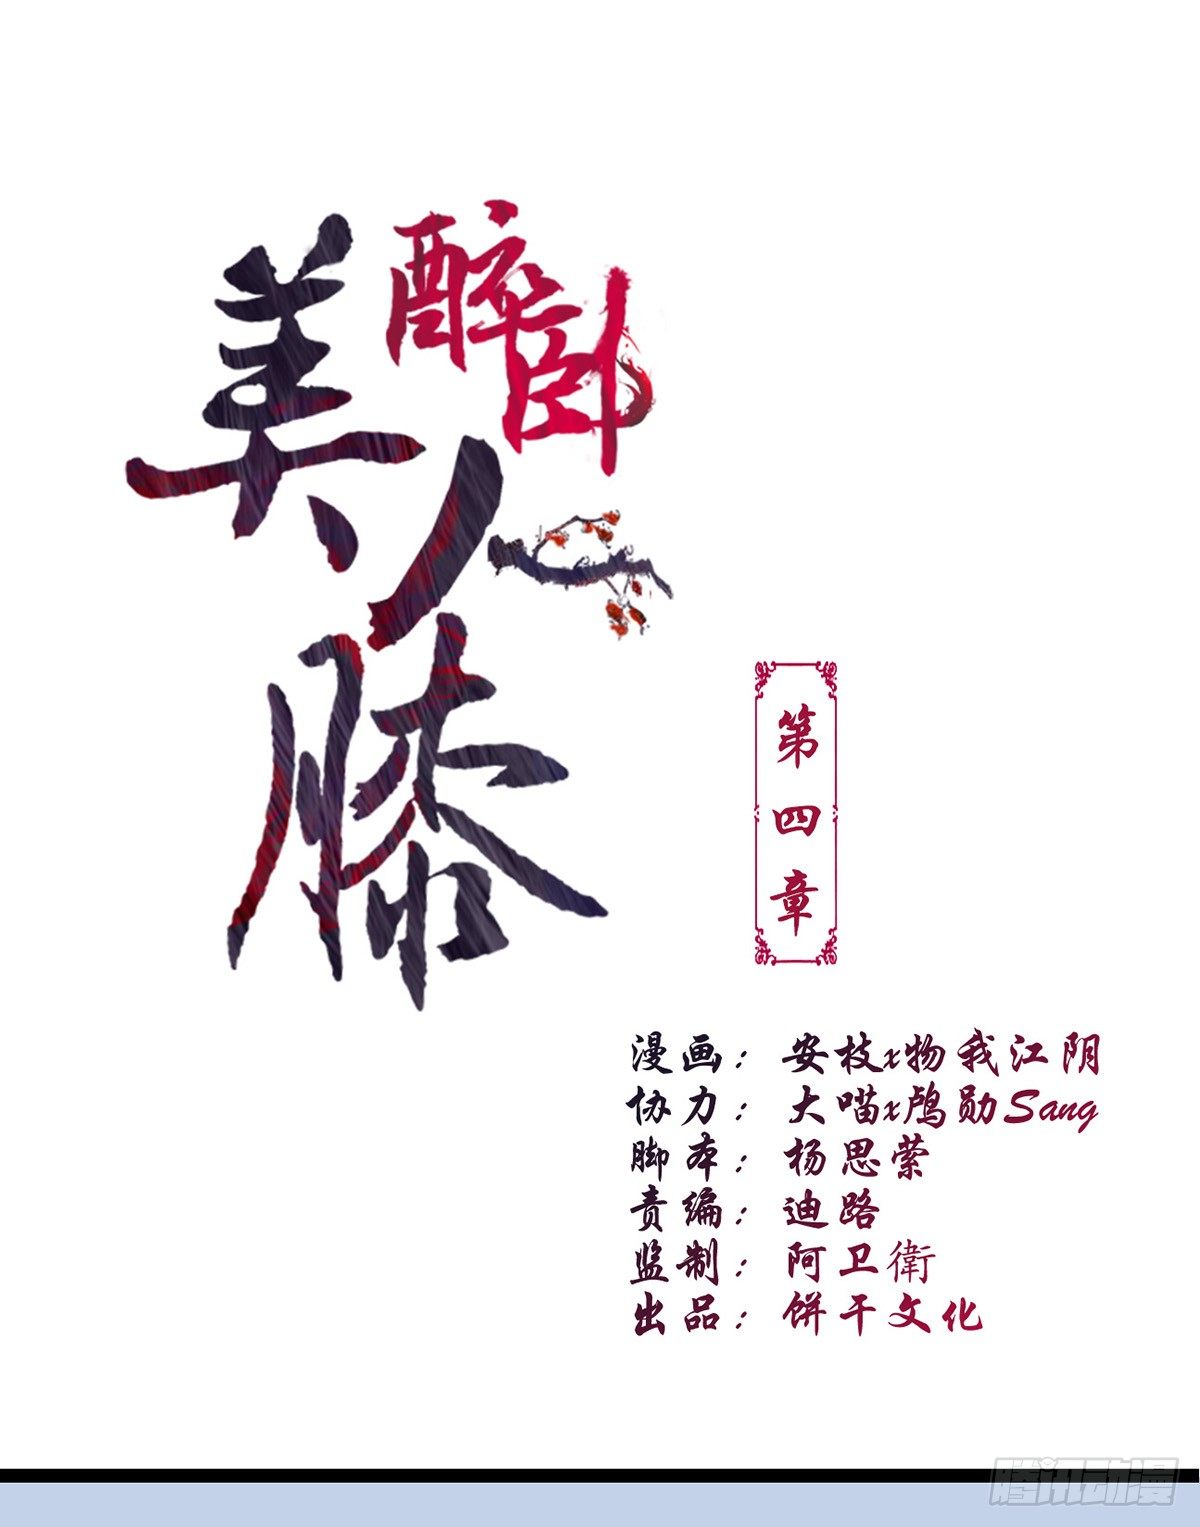 醉卧
美人膝
第四章
漫画：安枝x物我江阴
协力：大喵x鸬勋Sang
脚本：杨思萦
责编：迪路
监制：阿卫衛
出品：饼干文化
腾讯动漫